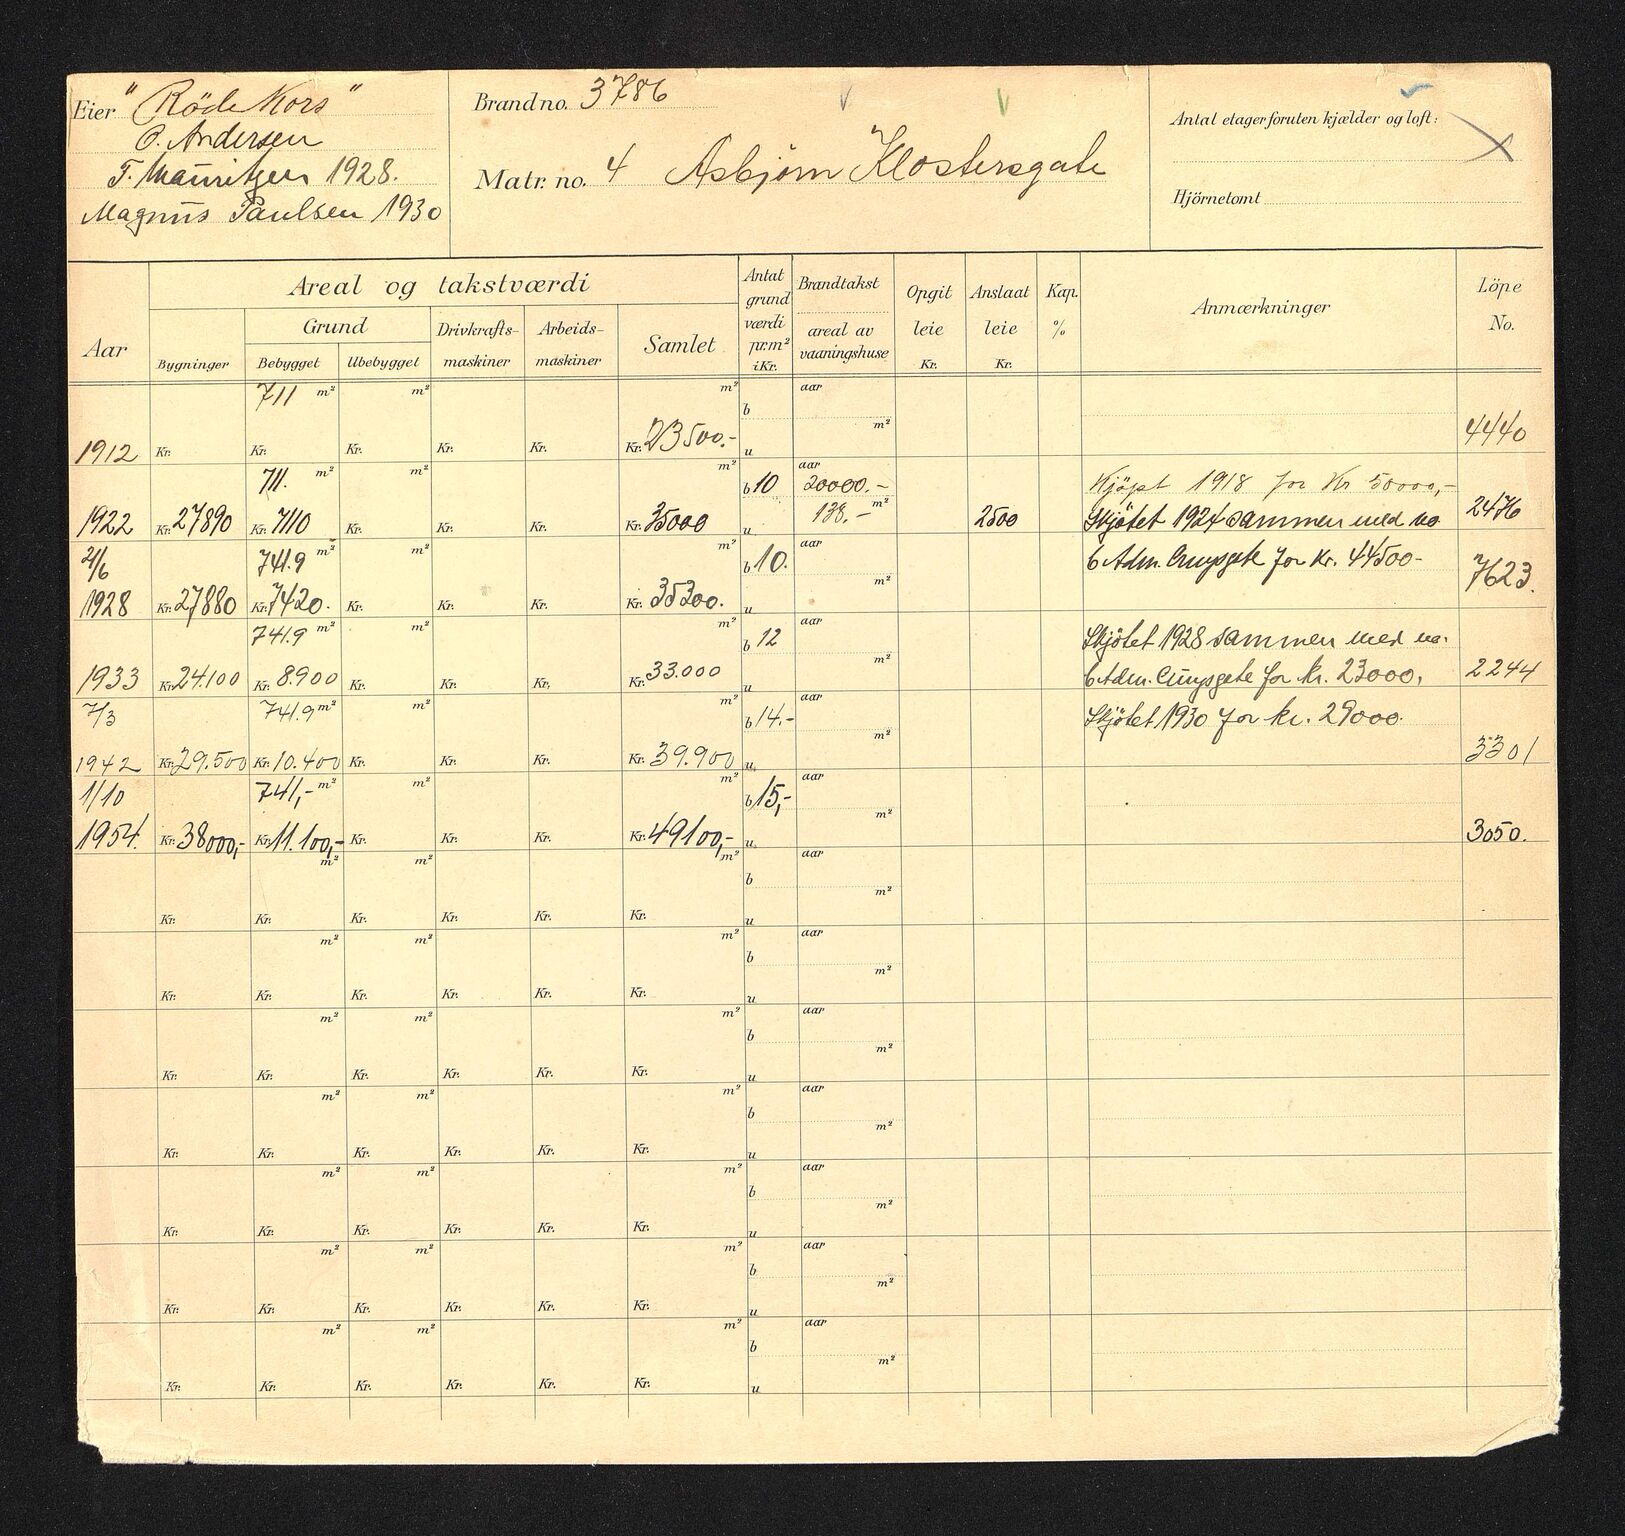 Eier "Röde Kors"
O. Andersen
T. Mauritzen 1928.
Magnus Paulsen 1930
Brand no. 3786
Matr. no. 4 Asbjörn Klostersgate
Antal etager foruten kjælder og loft:
Hjörnetomt
Aar
Areal og takstværdi
Bygninger
Grund
Bebygget Ubebygget
Drivkrafts-
maskiner
Arbeids-
maskiner
Samlet
Antat
grund
værdi
pr.m²
i Kr.
Brandtakst
areal av
vaaningshuse
Opgit
leie
Kr.
Anslaat
leie
Kr.
Kap.
%
Anmærkninger
Löpe
No.
711 m² m² m² b aar
m²
1912 Kr. Kr. Kr. Kr. Kr. Kr. 23500.- u 4440
711. m² m² m² b 10 aar 20000.- Kjöpt 1918 for Kr 50000,-
1922 Kr. 27890 Kr. 7110 Kr. Kr. Kr. Kr. 35000 u 138.- m² 2500 Skjötet 1924 sammen med no 2476
2/6 741.9 m² m² m² b 10. aar 6 Adm. Cruysgate for Kr. 44500-
m²
1928 Kr. 27880 Kr. 7420. Kr. Kr. Kr. Kr. 35300. u 7623.
741.9 m² m² m² b 12 aar Skjötet 1928 sammen med no.
m²
1933 Kr. 24.100 Kr. 8.900 Kr. Kr. Kr. Kr. 33.000 u 6 Adm. Cruysgate for kr. 23000. 2244
7/3 741.9 m² m² m² b 14.- aar Skjötet 1930 for kr. 29000.
m²
1942 Kr. 29.500 Kr. 10.400 Kr. Kr. Kr. Kr. 39.900 u 3301
1/10 741,- m² m² m² b 15,- aar
m²
1954. Kr. 38000,- Kr. 11.100,- Kr. Kr. Kr. Kr. 49100,- u 3050.
m² m² m² b aar
m²
Kr. Kr. Kr. Kr. Kr. Kr. u
m² m² m² b aar
m²
Kr. Kr. Kr. Kr. Kr. Kr. u
m² m² m² b aar
m²
Kr. Kr. Kr. Kr. Kr. Kr. u
m² m² m² b aar
m²
Kr. Kr. Kr. Kr. Kr. Kr. u
m² m² m² b aar
m²
Kr. Kr. Kr. Kr. Kr. Kr. u
m² m² m² b aar
m²
Kr. Kr. Kr. Kr. Kr. Kr. u
m² m² m² b aar
m²
Kr. Kr. Kr. Kr. Kr. Kr. u